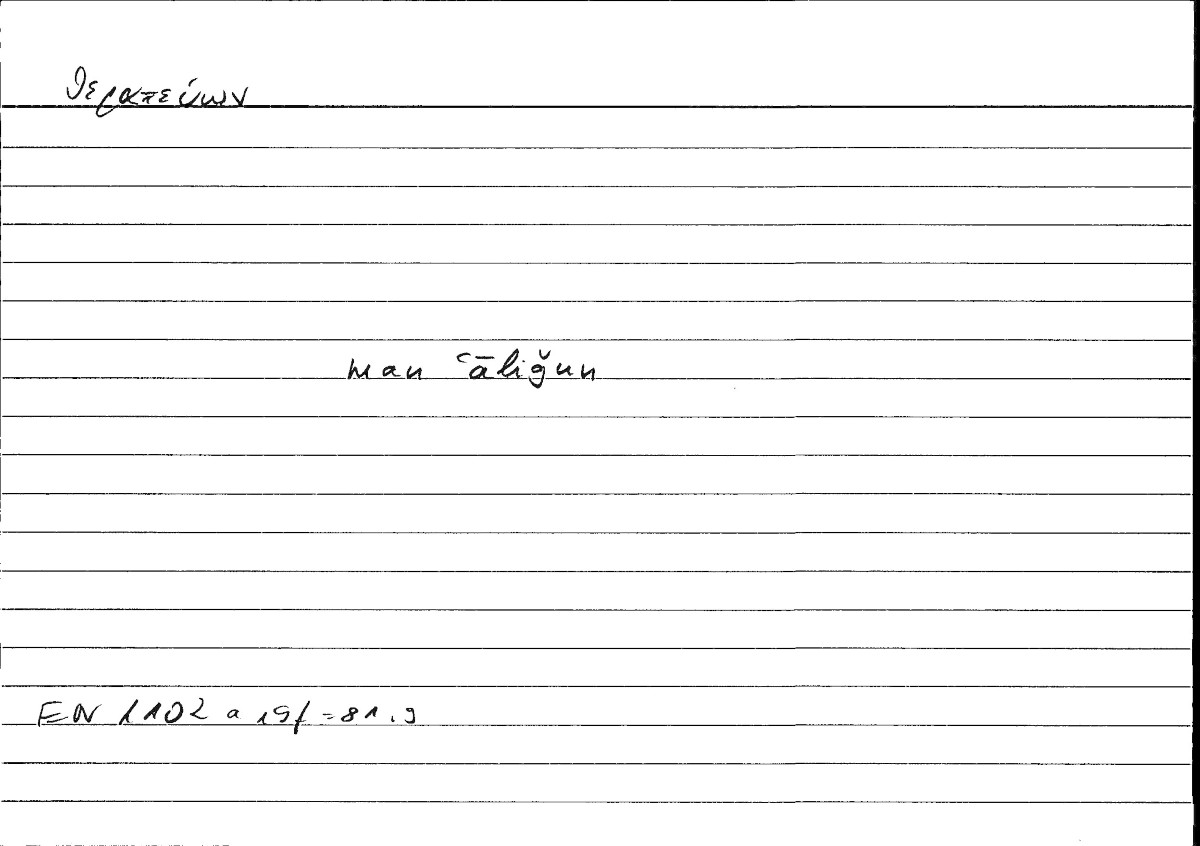 θεραπεύων
man ʿāliǧun
EN 1102 a 19f = 81.9